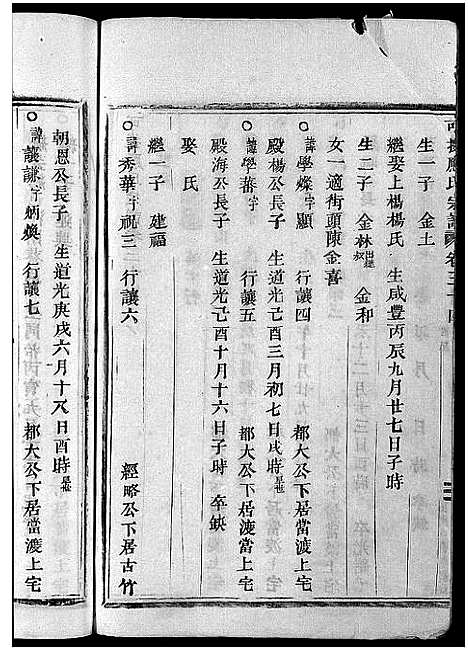 應氏宗譜 卷三十四
生一子 金土
繼娶上楊楊氏 生咸豐丙辰九月廿七日子時
生二子 金林出繼 金和
女一適街頭陳金喜
○諱學燦字顯 行讓四 都大公下居當渡上宅
殿楊公長子 生道光己酉三月初七日戌時
○諱學蕃字 行讓五 都大公下居渡當上宅
殿海公長子 生道光己酉十月十六日子時 卒缺
娶氏
繼一子 建福
○諱秀華字祝三 行讓六 經略公下居古竹
朝恩公長子 生道光庚戌六月十八日酉時
○諱讓謙字炳煥 行讓七 都大公下居當渡上宅